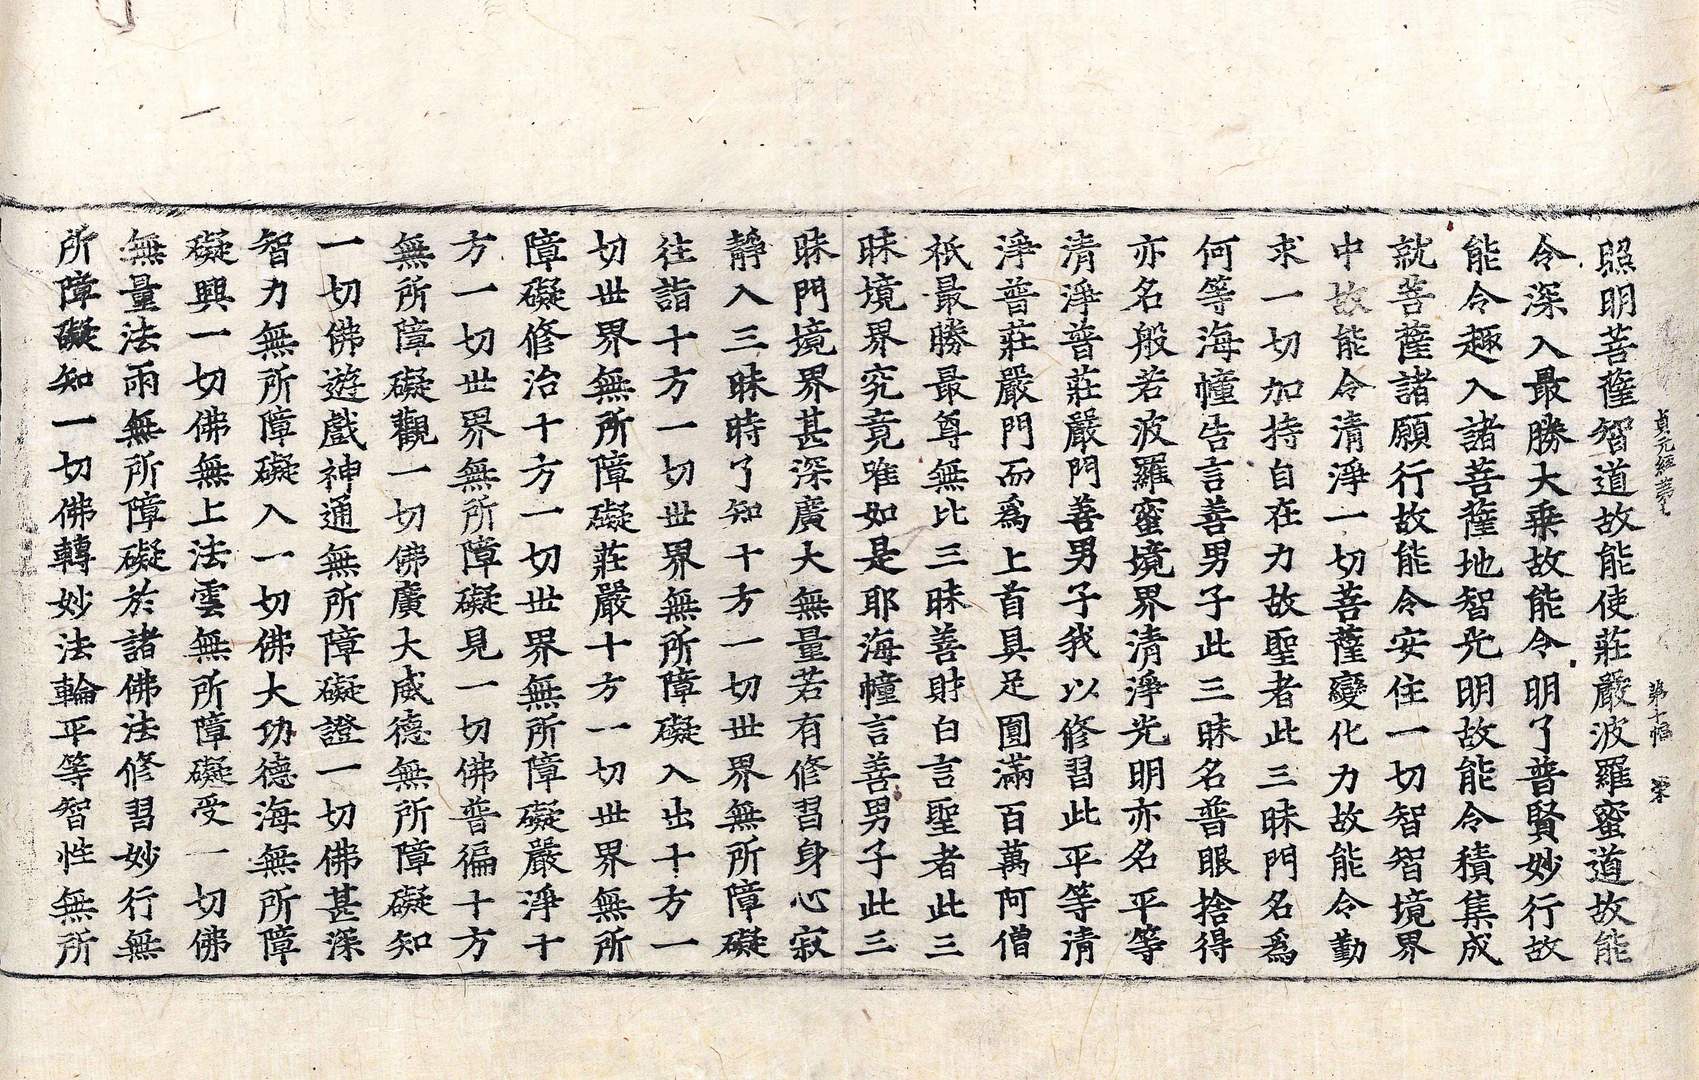 貞元經第七　第十幅　榮
照明菩薩智道故能使莊嚴波羅蜜道故能
令深入最勝大乘故能令明了普賢妙行故
能令趣入諸菩薩地智光明故能令積集成
就菩薩諸願行故能令安住一切智智境界
中故能令清淨一切菩薩變化力故能令勤
求一切加持自在力故聖者此三昧門名為
何等海幢告言善男子此三昧名普眼捨得
亦名般若波羅蜜境界清淨光明亦名平等
清淨普莊嚴門善男子我以修習此平等清
淨普莊嚴門而為上首具足圓滿百萬阿僧
祇最勝最尊無比三昧善財白言聖者此三
昧境界究竟唯如是耶海幢言善男子此三
昧門境界甚深廣大無量若有修習身心寂
靜入三昧時了知十方一切世界無所障礙
往詣十方一切世界無所障礙入出十方一
切世界無所障礙莊嚴十方一切世界無所
障礙修治十方一切世界無所障礙嚴淨十
方一切世界無所障礙見一切佛普徧十方
無所障礙觀一切佛廣大威德無所障礙知
一切佛遊戲神通無所障礙證一切佛甚深
智力無所障礙入一切佛大功德海無所障
礙興一切佛無上法雲無所障礙受一切佛
無量法雨無所障礙於諸佛法修習妙行無
所障礙知一切佛轉妙法輪平等智性無所